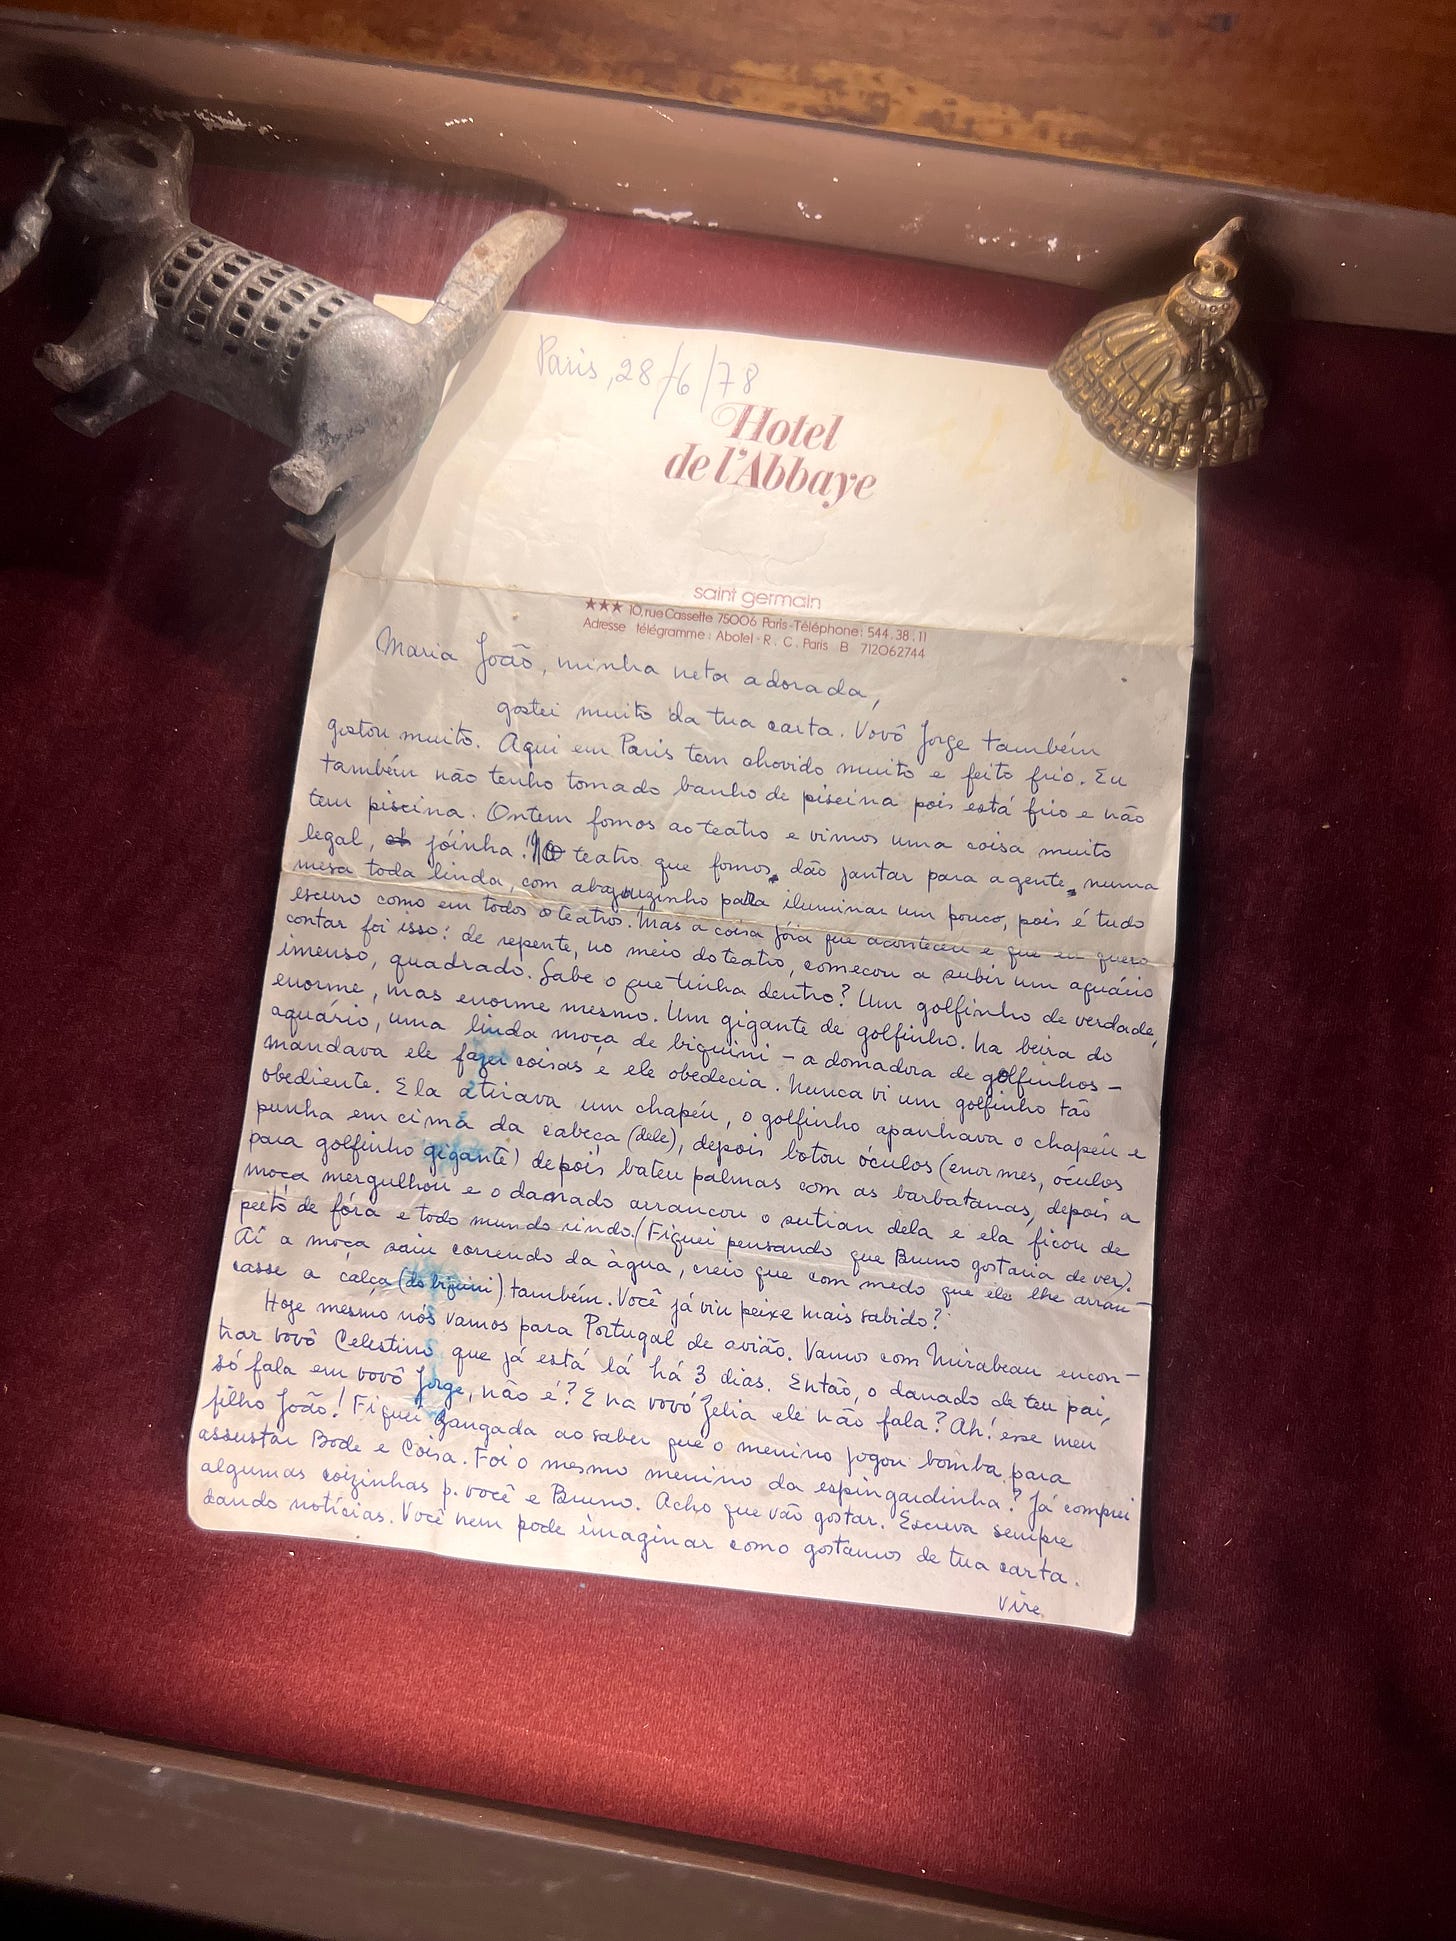 Paris, 28/6/78
Hotel
de l'Abbaye
saint germain
★★★ 10, rue Cassette 75006 Paris - Téléphone: 544.38.11
Adresse télégramme: Abotel - R. C. Paris B 712062744
Maria João, minha neta adorada,
gostei muito da tua carta. Vovô Jorge também
gostou muito. Aqui em Paris tem chovido muito e feito frio. Eu
também não tenho tomado banho de piscina pois está frio e não
tem piscina. Ontem fomos ao teatro e vimos uma coisa muito
legal, jóinha! O teatro que fomos, dão jantar para a gente, numa
mesa toda linda, com abajouzinho para iluminar um pouco, pois é tudo
escuro como em todos os teatros. Mas a coisa jóia que aconteceu e que eu quero
contar foi isso: de repente, no meio do teatro, começou a subir um aquário
imenso, quadrado. Sabe o que tinha dentro? Um golfinho de verdade,
enorme, mas enorme mesmo. Um gigante de golfinho. Na beira do
aquário, uma linda moça de biquini – a domadora de golfinhos –
mandava ele fazer coisas e ele obedecia. Nunca vi um golfinho tão
obediente. Ela atirava um chapéu, o golfinho apanhava o chapéu e
punha em cima da cabeça (dele), depois botou óculos (enormes, óculos
para golfinho gigante) depois bateu palmas com as barbatanas, depois a
moça mergulhou e o danado arrancou o sutian dela e ela ficou de
peito de fóra e todo mundo rindo. (Fiquei pensando que Bruno gostaria de ver).
Aí a moça saiu correndo da àgua, creio que com medo que ele lhe arran-
casse a calça (do biquini) também. Você já viu peixe mais sabido?
Hoje mesmo nós vamos para Portugal de avião. Vamos com Mirabeau encon-
trar vovô Celestino que já está lá há 3 dias. Então, o danado de teu pai,
só fala em vovô Jorge, não é? E na vovó Zelia ele não fala? Ah! esse meu
filho João! Fiquei zangada ao saber que o menino jogou bomba para
assustar Bode e Coisa. Foi o mesmo menino da espingardinha? Já comprei
algumas coizinhas p. você e Bruno. Acho que vão gostar. Escreva sempre
dando notícias. Você nem pode imaginar como gostamos de tua carta.
Vire